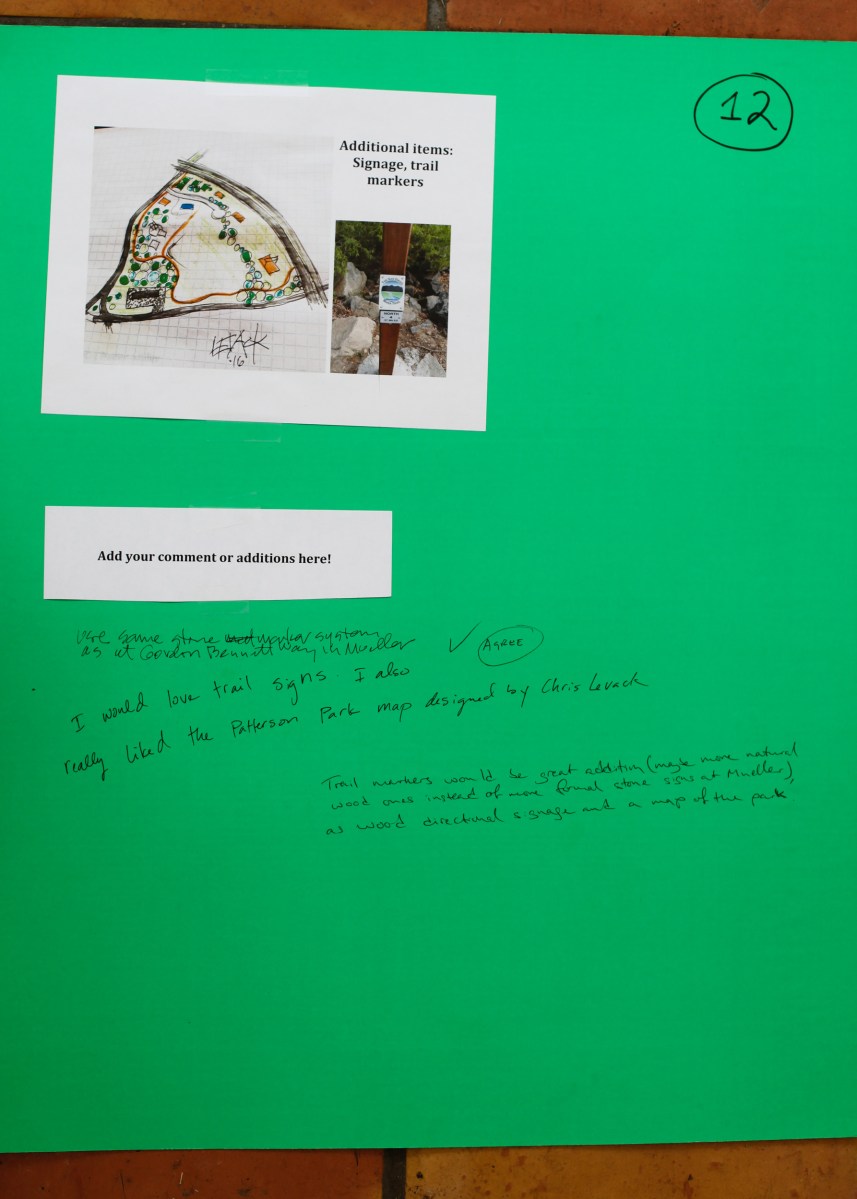 12
Additional items:
Signage, trail
markers
LEVACK
'16
NORTH
Add your comment or additions here!
use same stone marker system
as at Gordon Bennett Way in Mueller
✓ AGREE
I would love trail signs. I also
really liked the Patterson Park map designed by Chris Levack
Trail markers would be great addition (maybe more natural
wood ones instead of more formal stone signs at Mueller),
as wood directional signage and a map of the park